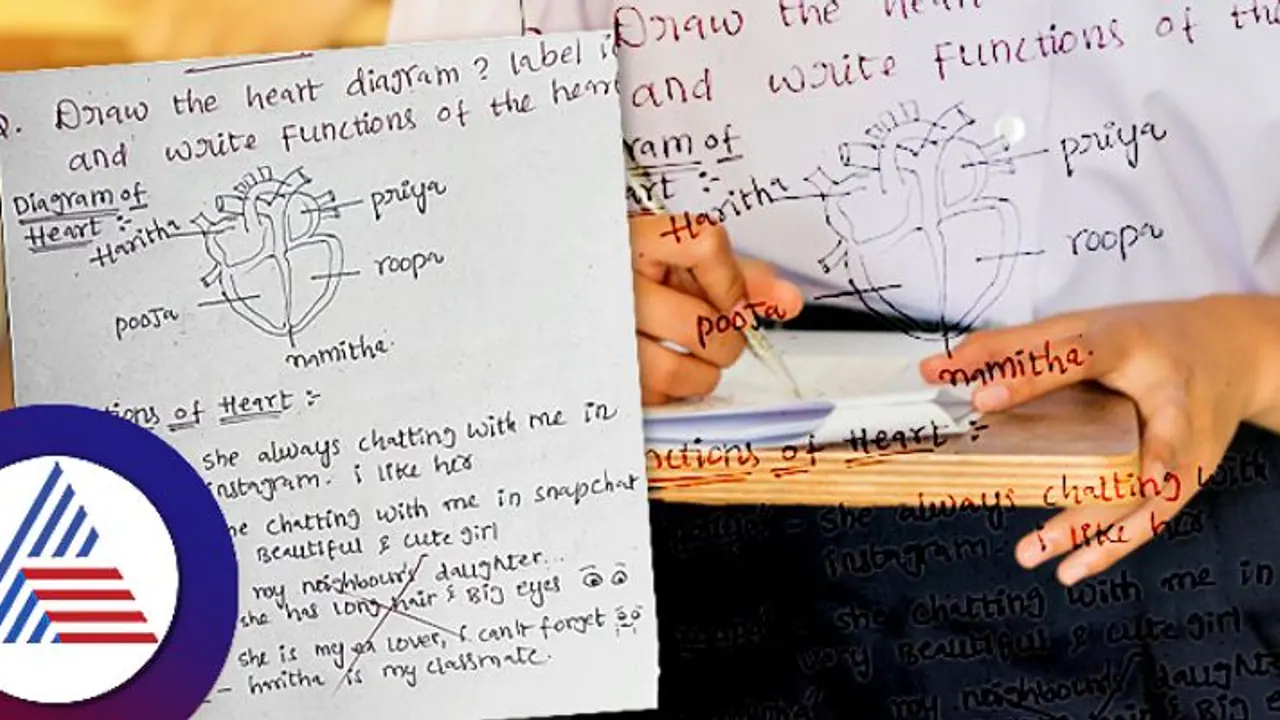 Q. Draw the heart diagram? label i
and write functions of the hear
Diagram of
Heart :-
Haritha
priya
roopa
pooja
namitha.
tions of Heart :-
she always chatting with me in
instagram. i like her
he chatting with me in snapchat
Beautiful & cute girl
my neighbour's daughter...
she has long hair & Big eyes
she is my ex lover, i can't forget
- haritha is my classmate.
Draw the heart
and write functions of the
ram of
art :-
Haritha
priya
roopa
pooja
namitha.
nctions of Heart :-
- she always chatting with
instagram. i like her
- she chatting with me in
very Beautiful & cute girl
my neighbour's daughte
Big e